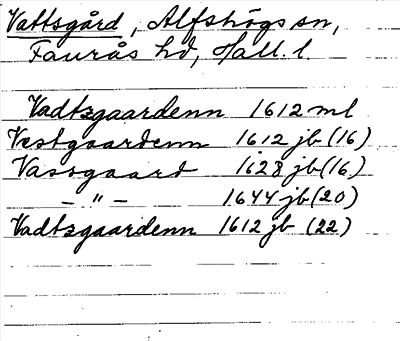 Vattsgård, Alfshögs sn,
Faurås hd, Hall. l.
Vadtzgaardenn 1612 ml
Vestgaardenn 1612 jb (16)
Vassgaard 1628 jb (16)
— " — 1644 jb (20)
Vadtzgaardenn 1612 jb (22)